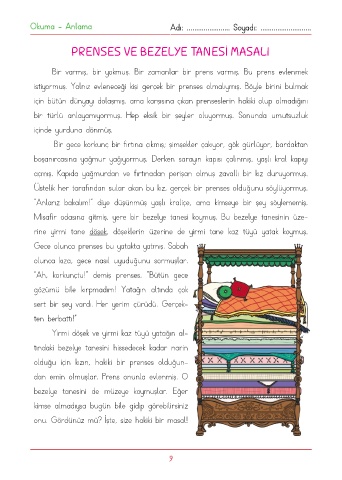 Okuma - Anlama
Adı: ...................... Soyadı: ..........................
PRENSES VE BEZELYE TANESİ MASALI
Bir varmış, bir yokmuş. Bir zamanlar bir prens varmış. Bu prens evlenmek
istiyormuş. Yalnız evleneceği kişi gerçek bir prenses olmalıymış. Böyle birini bulmak
için bütün dünyayı dolaşmış, ama karşısına çıkan prenseslerin hakiki olup olmadığını
bir türlü anlayamıyormuş. Hep eksik bir şeyler oluyormuş. Sonunda umutsuzluk
içinde yurduna dönmüş.
Bir gece korkunç bir fırtına çıkmış; şimşekler çakıyor, gök gürlüyor, bardaktan
boşanırcasına yağmur yağıyormuş. Derken sarayın kapısı çalınmış, yaşlı kral kapıyı
açmış. Kapıda yağmurdan ve fırtınadan perişan olmuş zavallı bir kız duruyormuş.
Üstelik her tarafından sular akan bu kız, gerçek bir prenses olduğunu söylüyormuş.
"Anlarız bakalım!" diye düşünmüş yaşlı kraliçe, ama kimseye bir şey söylememiş.
Misafir odasına gitmiş, yere bir bezelye tanesi koymuş. Bu bezelye tanesinin üze-
rine yirmi tane döşek, döşeklerin üzerine de yirmi tane kaz tüyü yatak koymuş.
Gece olunca prenses bu yatakta yatmış. Sabah
olunca kıza, gece nasıl uyuduğunu sormuşlar.
"Ah, korkunçtu!" demiş prenses. "Bütün gece
gözümü bile kırpmadım! Yatağın altında çok
sert bir şey vardı. Her yerim çürüdü. Gerçek-
ten berbattı!"
Yirmi döşek ve yirmi kaz tüyü yatağın al-
tındaki bezelye tanesini hissedecek kadar narin
olduğu için kızın, hakiki bir prenses olduğun-
dan emin olmuşlar. Prens onunla evlenmiş. O
bezelye tanesini de müzeye koymuşlar. Eğer
kimse almadıysa bugün bile gidip görebilirsiniz
onu. Gördünüz mü? İşte, size hakiki bir masal!
9